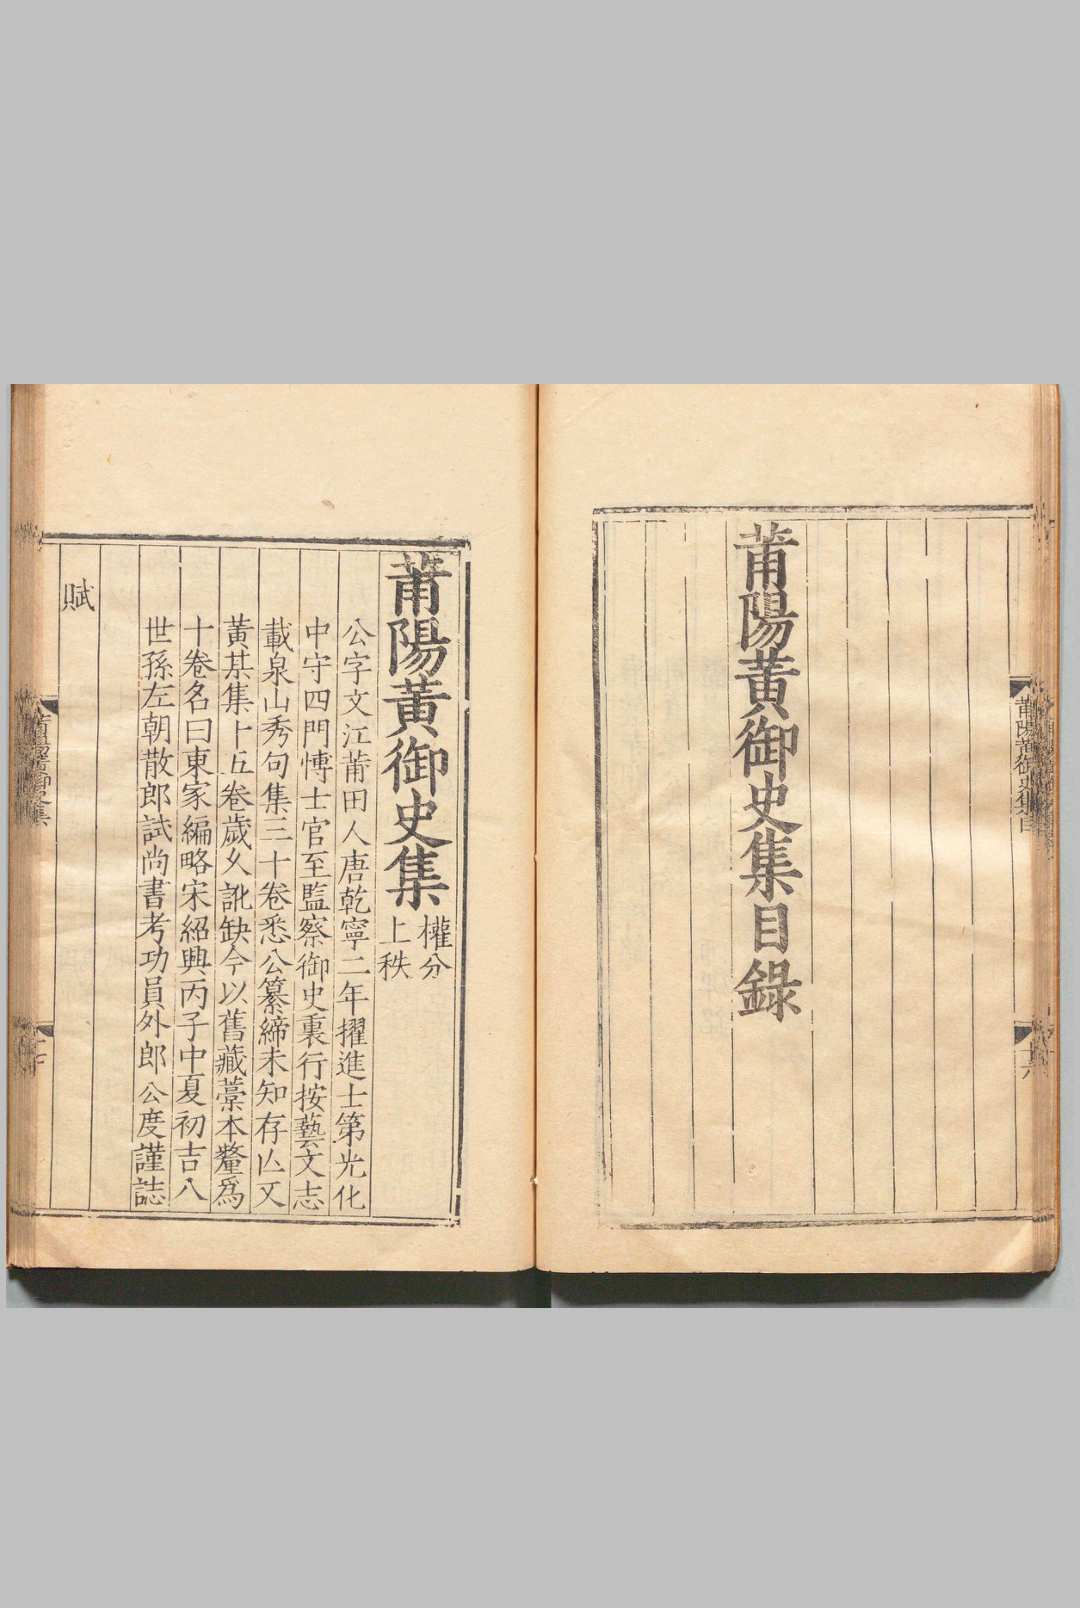 莆陽黃御史集目錄
莆陽黃御史集目
十六
莆陽黃御史集
權分
上秩
公字文江莆田人唐乾寧二年擢進士第光化
中守四門博士官至監察御史裏行按藝文志
載泉山秀句集三十卷悉公纂締未知存亾又
黃某集十五卷歲久訛缺今以舊藏藁本釐爲
十卷名曰東家編略宋紹興丙子中夏初吉八
世孫左朝散郎試尚書考功員外郎公度謹誌
賦